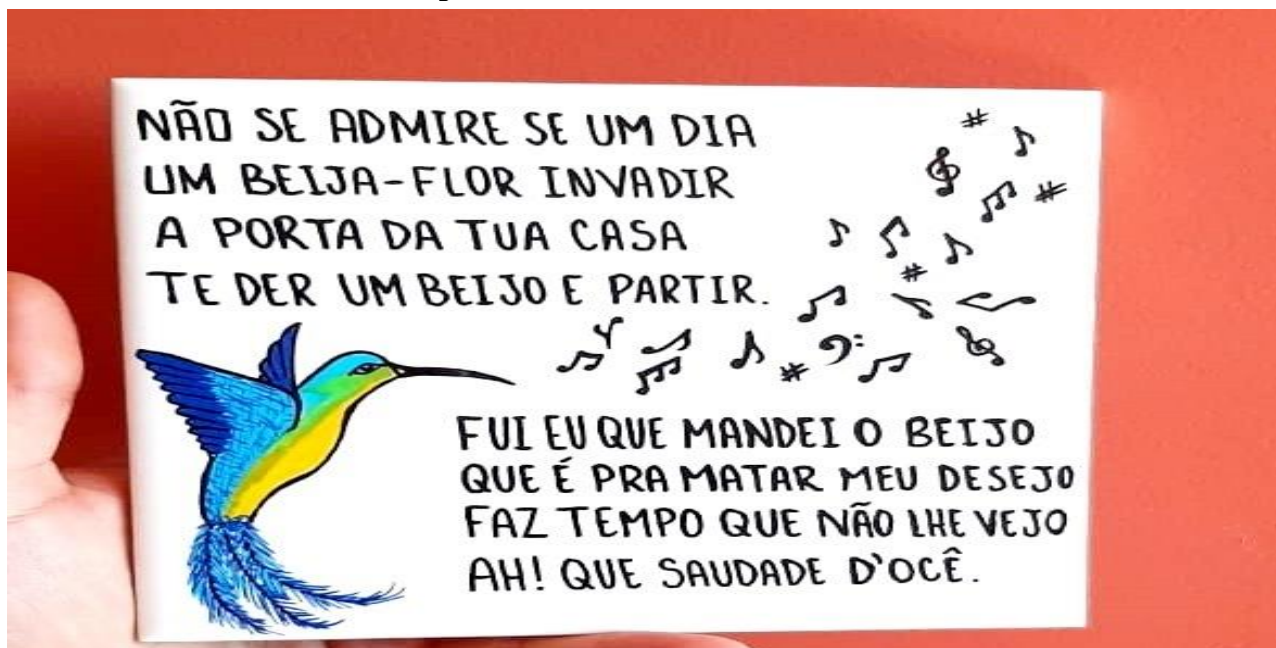 NÃO SE ADMIRE SE UM DIA
UM BEIJA-FLOR INVADIR
A PORTA DA TUA CASA
TE DER UM BEIJO E PARTIR.
FUI EU QUE MANDEI O BEIJO
QUE É PRA MATAR MEU DESEJO
FAZ TEMPO QUE NÃO LHE VEJO
AH! QUE SAUDADE D'OCÊ.